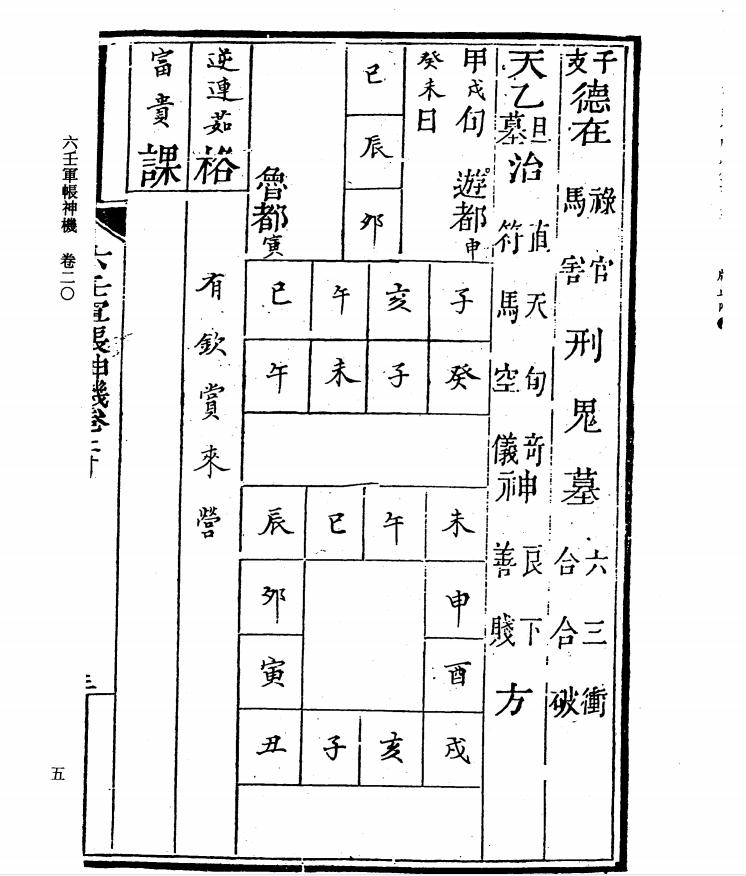 干支德在祿馬官害刑鬼墓六合三合衝破
天乙旦墓治直符天馬旬空竒儀神良善下賤方
甲戌旬
癸未日
遊都申
巳
辰
夘
魯都寅
子 亥 午 巳
癸 子 未 午
未 午 巳 辰
申 夘
酉 寅
戌 亥 子 丑
逆連茹
富貴課
有欽賞來營
六壬軍帳神機 卷二〇
五